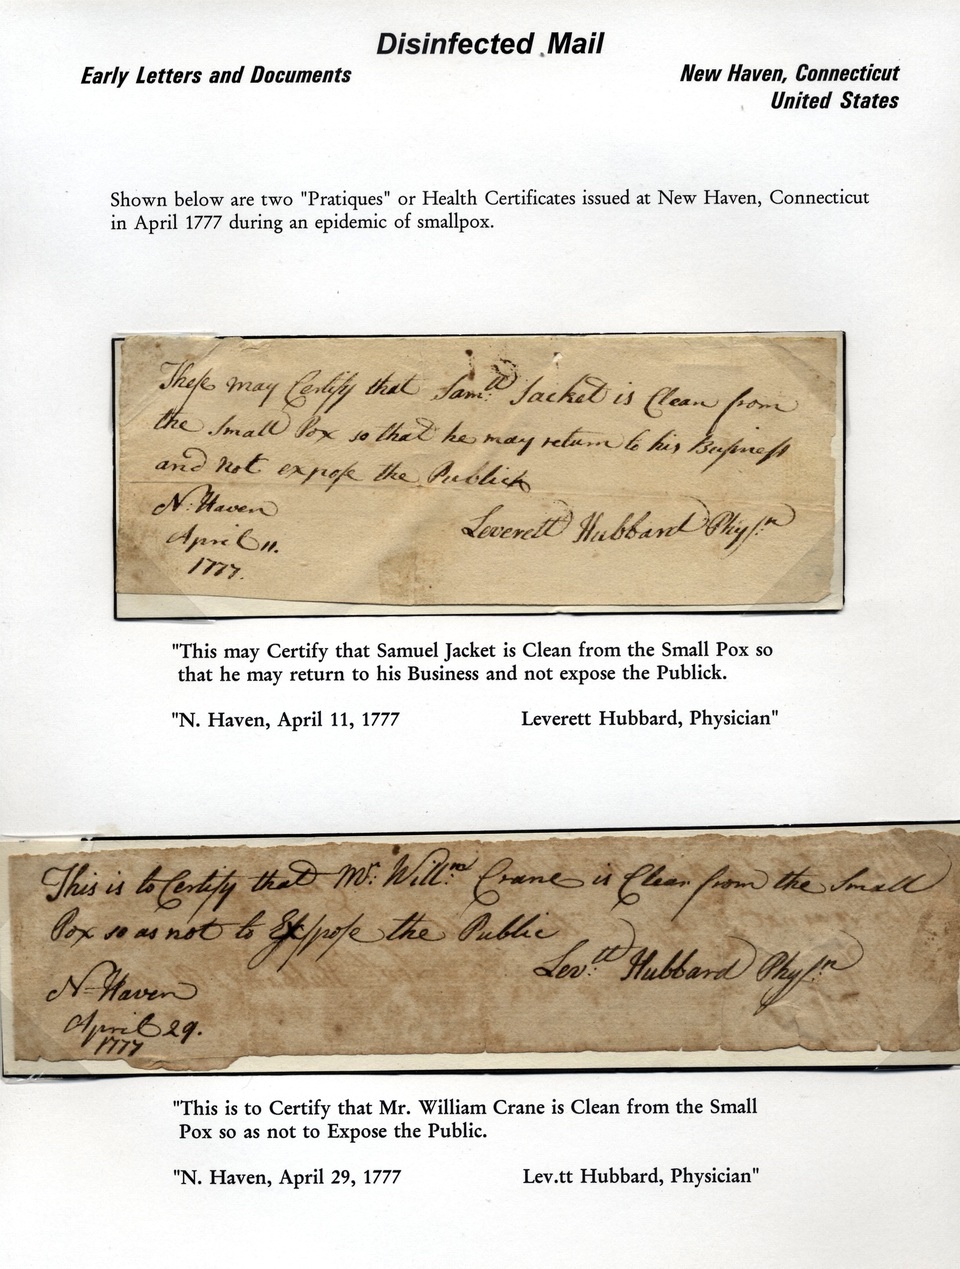 Disinfected Mail
Early Letters and Documents
New Haven, Connecticut
United States
Shown below are two "Pratiques" or Health Certificates issued at New Haven, Connecticut
in April 1777 during an epidemic of smallpox.
These may Certify that Sam.ll Jacket is Clean from
the Small Pox so that he may return to his Business
and not expose the Publick
N. Haven
April 11.
1777.
Leverett Hubbard Phys.n
"This may Certify that Samuel Jacket is Clean from the Small Pox so
that he may return to his Business and not expose the Publick.
"N. Haven, April 11, 1777
Leverett Hubbard, Physician"
This is to Certify that Mr. Will.m Crane is Clean from the Small
Pox so as not to Expose the Public
Lev.tt Hubbard Phys.n
N-Haven
April 29.
1777
"This is to Certify that Mr. William Crane is Clean from the Small
Pox so as not to Expose the Public.
"N. Haven, April 29, 1777
Lev.tt Hubbard, Physician"